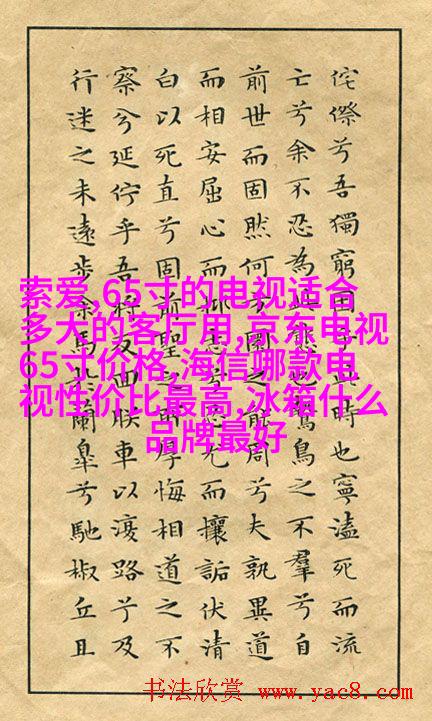 侘傺兮吾獨窮困乎此時也寧溘死而流
亡兮余不忍為此態也鷙鳥之不羣兮自
前世而固然何方圜之能周兮夫孰異道
而相安屈心而抑志兮忍尤而攘詬伏清
白以死直兮固前聖之所厚悔相道之不
察兮延佇乎吾將反回朕車以復路兮及
行迷之未遠步余馬於蘭皐兮馳椒丘且
索爱 ,65寸的电视适合
多大的客厅用,京东电视
65寸价格,海信哪款电
视性价比最高,冰箱什么
品牌最好
书法欣赏 www.yac8.com